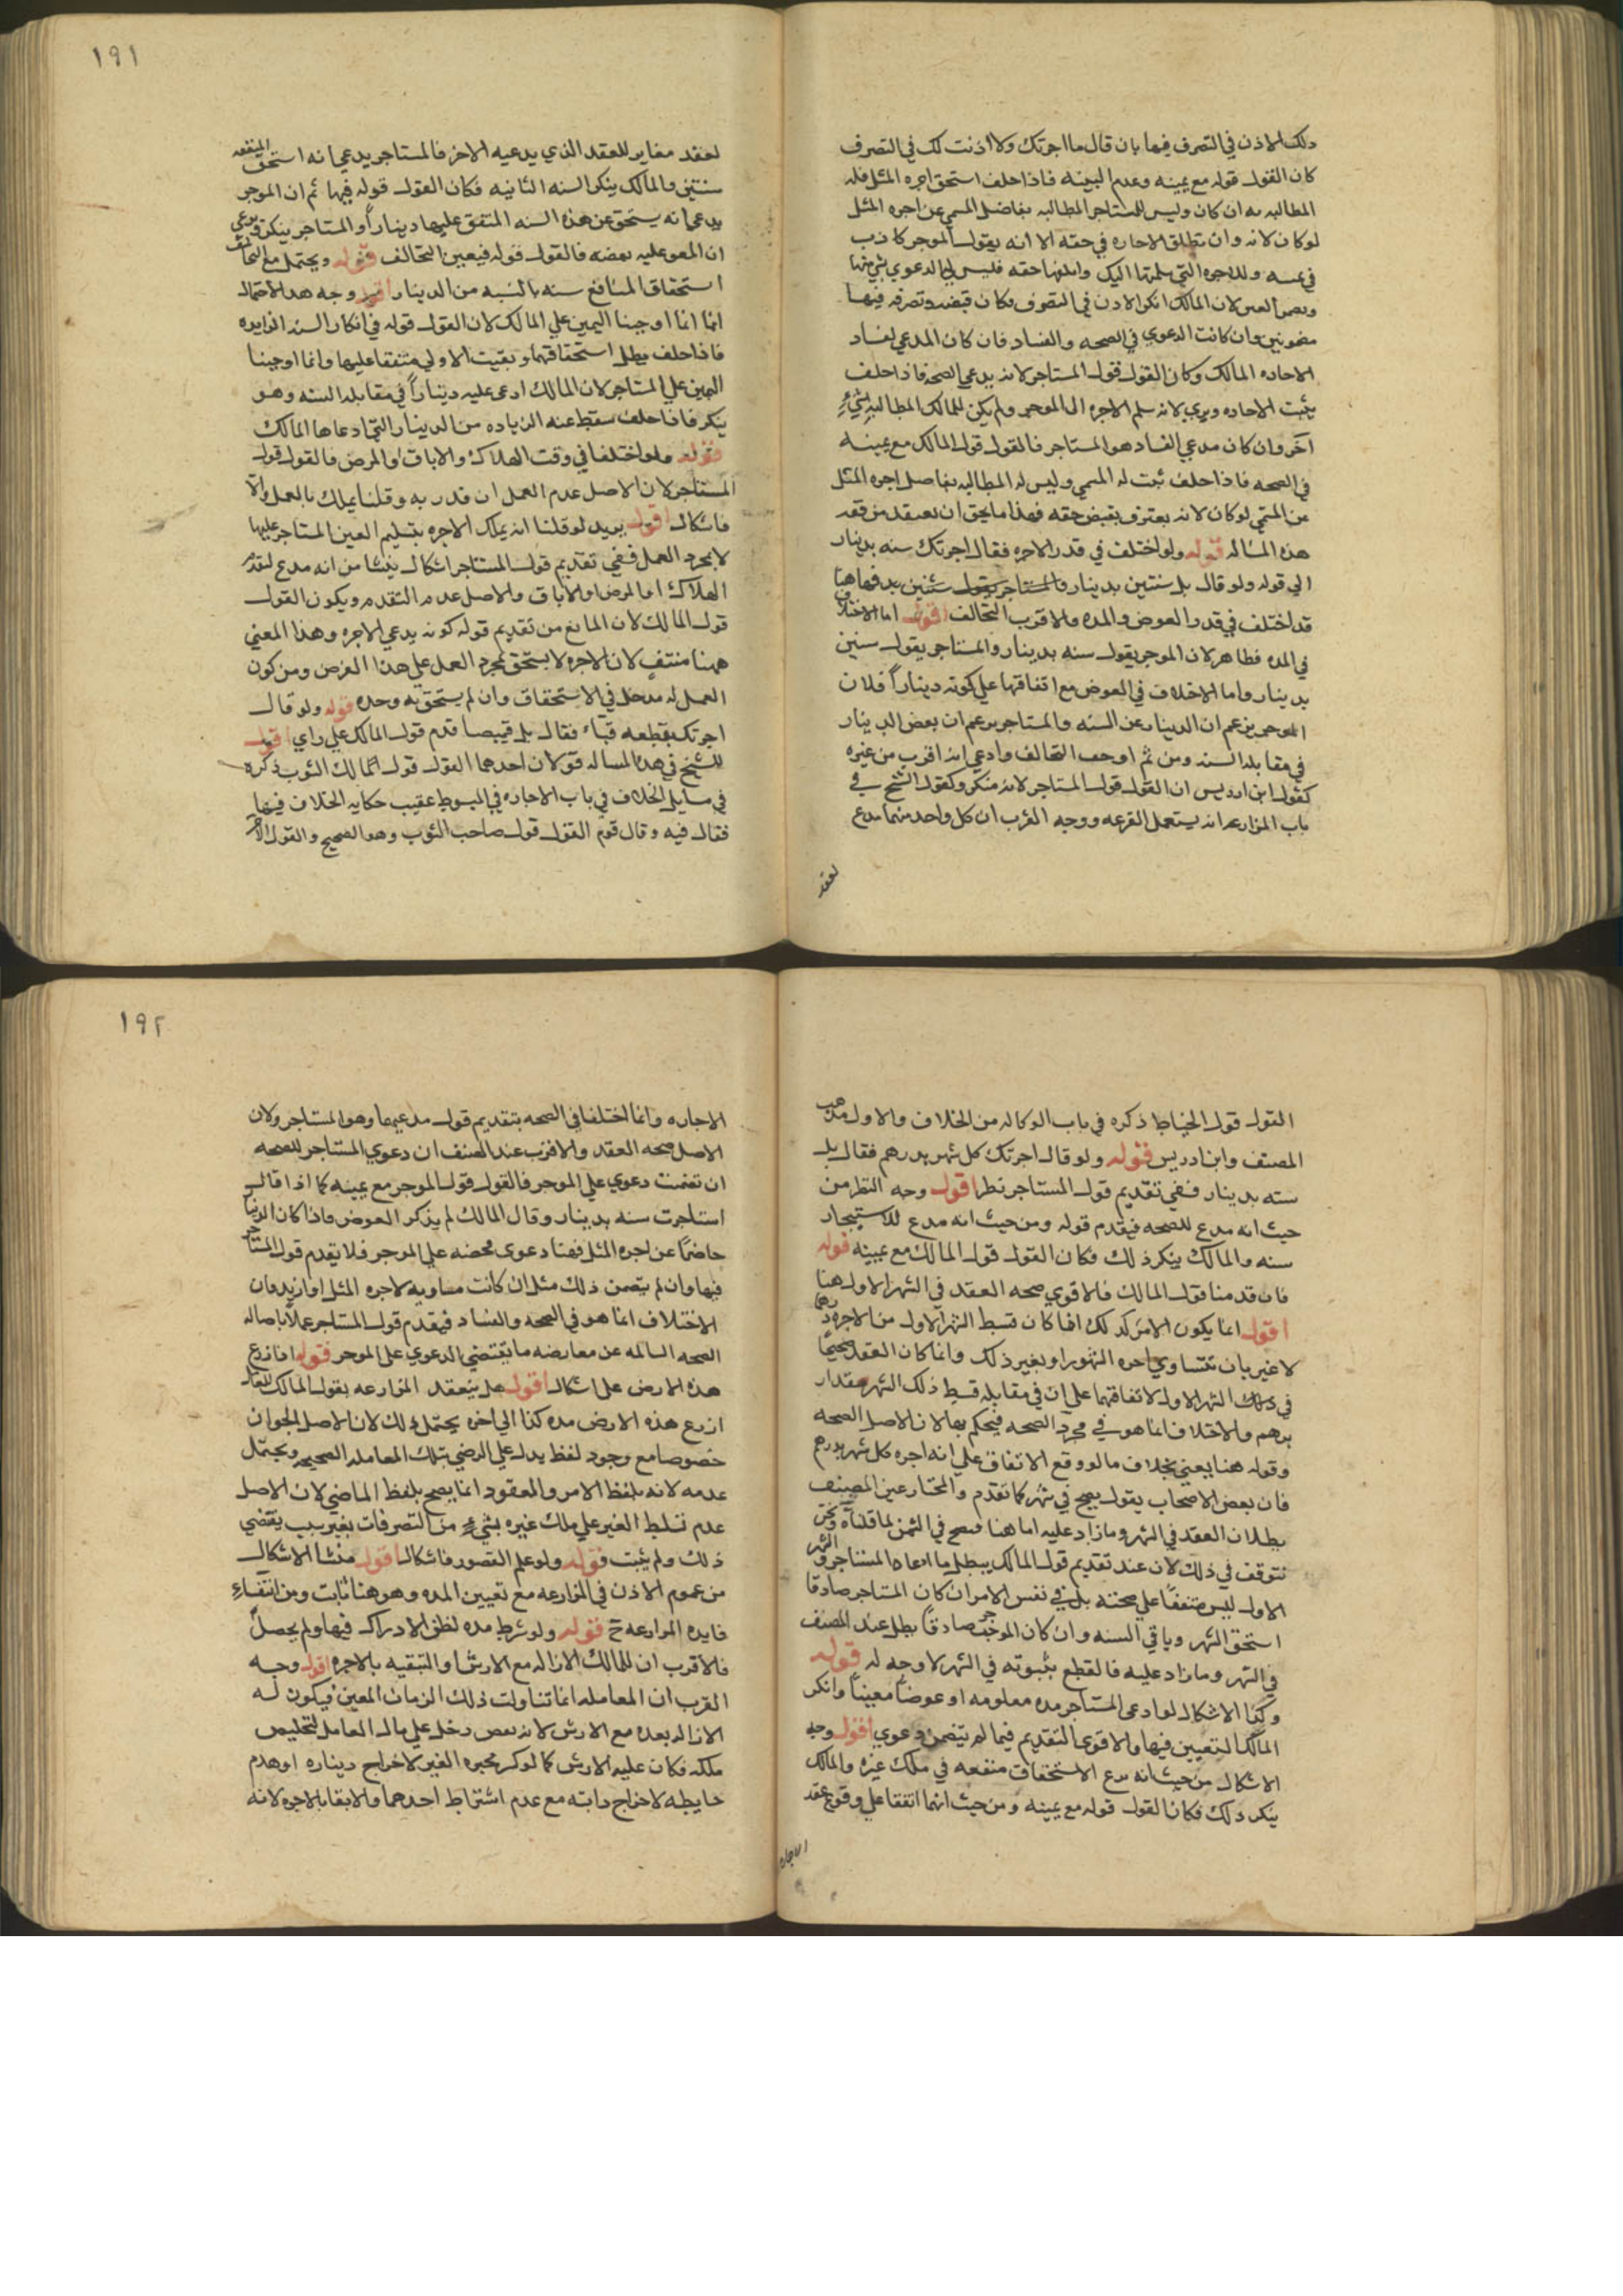 دلك الاذن في التصرف فيها بان قال ما اجرتك ولا اذنت لك في التصرف
كان القول قوله مع يمينه وعدم البينه فاذا حلف استحق اجره المثل فله
المطالبه به ان كان وليس للمستاجر المطالبه بفاضل المسمي عن اجره المثل
لو كان لانه وان تطلق الاجاره في حقه الا انه يقول الموجر كاذب
في يمينه والاجره التي سلمتها اليك حقه فليس لي الدعوي بشي منها
ويضمن العين لان المالك انكر الاذن في التصرف فكان قبضه وتصرفه فيها
مضمونين وان كانت الدعوي في الصحه والفساد فان كان المدعي لفساد
الاجاره المالك وكان القول قول المستاجر لانه يدعي الصحه فاذا حلف
يثبت الاجاره ويبري لانه سلم الاجره الي الموجر ولم يكن للمالك المطالبه بشيء
آخر وان كان مدعي الفساد هو المستاجر فالقول قول المالك مع يمينه
في الصحه فاذا حلف ثبت له المسمي وليس له المطالبه بفاضل اجره المثل
عن المسمي لو كان لانه يعترف بقبض حقه فهذا ما يحق ان يعتقد من فقه
هذه المساله قوله ولو اختلف في قدر الاجره فقال اجرتك سنه بدينار
الي قوله ولو قال بل سنتين بدينار والمستاجر يقول سنتين بدـ فهاهنا
قد اختلف في قدر العوض والمده والاقرب التحالف اقول اما الاختلاف
في المده فظاهر لان الموجر يقول سنه بدينار والمستاجر يقول سنين
بدينار واما الاختلاف في العوض مع اتفاقهما علي كونه ديناراً فلان
الموجر يزعم ان الدينار عن السنه والمستاجر يزعم ان بعض الدينار
في مقابله السنه ومن ثم اوجب التحالف وادعي انه اقرب من غيره
كقول ابن ادريس ان القول قول المستاجر لانه منكر وكقول الشيخ في
باب المزارعه انه يستعمل القرعه ووجه القرب ان كل واحد منهما مدع
لعقد
١٩١
لعقد مغاير للعقد الذي يدعيه الاخر فالمستاجر يدعي انه استحق المنفعه
سنتين والمالك ينكر السنه الثانيه فكان القول قوله فيها ثم ان الموجر
يدعي انه يستحق عن هذه السنه المتفق عليها ديناراً والمستاجر ينكر ويدعي
ان المعو عليه بعضه فالقول قوله فيعين التحالف قوله ويحتمل مع التحالف
استحقاق المنافع سنه بالنسبه من الدينار اقول وجه هذا الاحتمال
انما انا اوجبنا اليمين علي المالك لان القول قوله في انكار السنه الزايده
فاذا حلف بطل استحقاقها وبقيت الاولي متفقا عليها وانما اوجبنا
اليمين علي المستاجر لان المالك ادعي عليه ديناراً في مقابله السنه وهو
ينكر فاذا حلف سقط عنه الزياده من الدينار التي ادعاها المالك
قوله ولو اختلفا في وقت الهلاك والاباق او المرض فالقول قول
المستاجر لان الاصل عدم العمل ان قدر به وقلنا يملك بالعمل والا
فاشكال اقول يريد لو قلنا انه يملك الاجره بتسليم العين المستاجر عليها
لا بمجرد العمل ففي تقديم قول المستاجر اشكال ينشا من انه مدع لتقدم
الهلاك او المرض او الاباق والاصل عدم التقدم ويكون القول
قول المالك لان المانع من تقديم قوله كونه يدعي الاجره وهذا المعني
ههنا منتفٍ لان الاجره لا يستحق بمجرد العمل علي هذا الفرض ومن كون
العمل له مدخل في الاستحقاق وان لم يستحق به وحده قوله ولو قال
اجرتك بقطعه قباء فقال بل قميصا قدم قول المالك علي راي اقول
للشيخ في هذه المساله قولان احدهما القول قول المالك الثوب ذكره
في مسايل الخلاف في باب الاجاره في المبسوط عقيب حكايه الخلاف فيها
فقال فيه وقال قوم القول قول صاحب الثوب وهو الصحيح والقول الآخر
القول قول الخياط ذكره في باب الوكاله من الخلاف والاول مذهب
المصنف وابن ادريس قوله ولو قال اجرتك كل شهر بدرهم فقال بل
سنه بدينار ففي تقديم قول المستاجر نظر اقول وجه النظر من
حيث انه مدع للصحه فيقدم قوله ومن حيث انه مدع للاستيجار
سنه والمالك ينكر ذلك فكان القول قول المالك مع يمينه قوله
فان قدمنا قول المالك فالاقوي صحه العقد في الشهر الاول هنا
اقول انما يكون الامر كذلك اذا كان قسط الشهر الاول من الاجره درهما
لا غير بان تتساوي اجره الشهور او بغير ذلك وانما كان العقد صحيحاً
في ذلك الشهر الاول لاتفاقهما علي ان في مقابله قسط ذلك الشهر مقدار
درهم والاختلاف انما هو في مجرد الصحه فيحكم بها لان الاصل الصحه
وقوله هنا يعني بخلاف ما لو وقع الاتفاق علي انه اجره كل شهر بدرهم
فان بعض الاصحاب يقول يصح في شهر كما تقدم والمختار عند المصنف
بطلان العقد في الشهر وما زاد عليه اما هنا فيصح في الثمن لما قلناه ونحن
نتوقف في ذلك لان عند تقديم قول المالك يبطل ما ادعاه المستاجر والشهر
الاول ليس متفقاً علي صحته بل في نفس الامر ان كان المستاجر صادقا
استحق الشهر وباقي السنه وان كان الموجر صادقاً بطل عند المصنف
في الشهر وما زاد عليه فالقطع بثبوته في الشهر لا وجه له قوله
وكذا الاشكال لو ادعي المستاجر مده معلومه او عوضاً معيناً وانكر
المالك التعيين فيها والاقوي التقديم فيما لم يتضمن دعوي اقول وجه
الاشكال من حيث انه مدع الاستحقاق منفعه في ملك غيره والمالك
ينكر ذلك فكان القول قوله مع يمينه ومن حيث انهما اتفقا علي وقوع عقد
الاجاره
١٩٢
الاجاره وانما اختلفا في الصحه بتقديم قول مدعيها وهو المستاجر ولان
الاصل صحه العقد والاقرب عند المصنف ان دعوي المستاجر للصحه
ان تضمنت دعوي علي الموجر فالقول قول الموجر مع يمينه كما اذا قال
استاجرت سنه بدينار وقال المالك لم يذكر العوض فاذا كان الدينار
خاصاً عن اجره المثل فهنا دعوي محضه علي الموجر فلا يقدم قول المستاجر
فيها وان لم يتضمن ذلك مثل ان كانت مساويه لاجره المثل او ازيد وان
الاختلاف انما هو في الصحه والفساد فيقدم قول المستاجر عملاً باصاله
الصحه السالمه عن معارضه ما يقتضي الدعوي علي الموجر قوله اما ازرع
هذه الارض علي اشكال اقول هل ينعقد المزارعه بقول المالك للعامل
ازرع هذه الارض مده كذا الي اخره يحتمل ذلك لان الاصل الجواز
خصوصا مع وجود لفظ يدل علي الرضي بتلك المعامله الصحيحه ويحتمل
عدمه لانه بلفظ الامر والعقود انما يصح بلفظ الماضي لان الاصل
عدم تسلط الغير علي ملك غيره بشيء من التصرفات بغير سبب يقتضي
ذلك ولم يثبت قوله ولو علم القصور فاشكال اقول منشا الاشكال
من عموم الاذن في المزارعه مع تعيين المده وهو هنا ثابت ومن انتفاء
فايده المزارعه ح قوله ولو شرط مده لظن الادراك فيها ولم يحصل
فالاقرب ان للمالك الازاله مع الارش او التبقيه بالاجره اقول وجه
القرب ان المعامله انما تناولت ذلك الزمان المعين فيكون له
الازاله بعده مع الارش لانه نقص دخل علي مال العامل لتخليص
ملكه فكان عليه الارش كما لو كسر محبره الغير لاخراج ديناره او هدم
حايطه لاخراج دابته مع عدم اشتراط احدهما والابقا بالاجره لانه